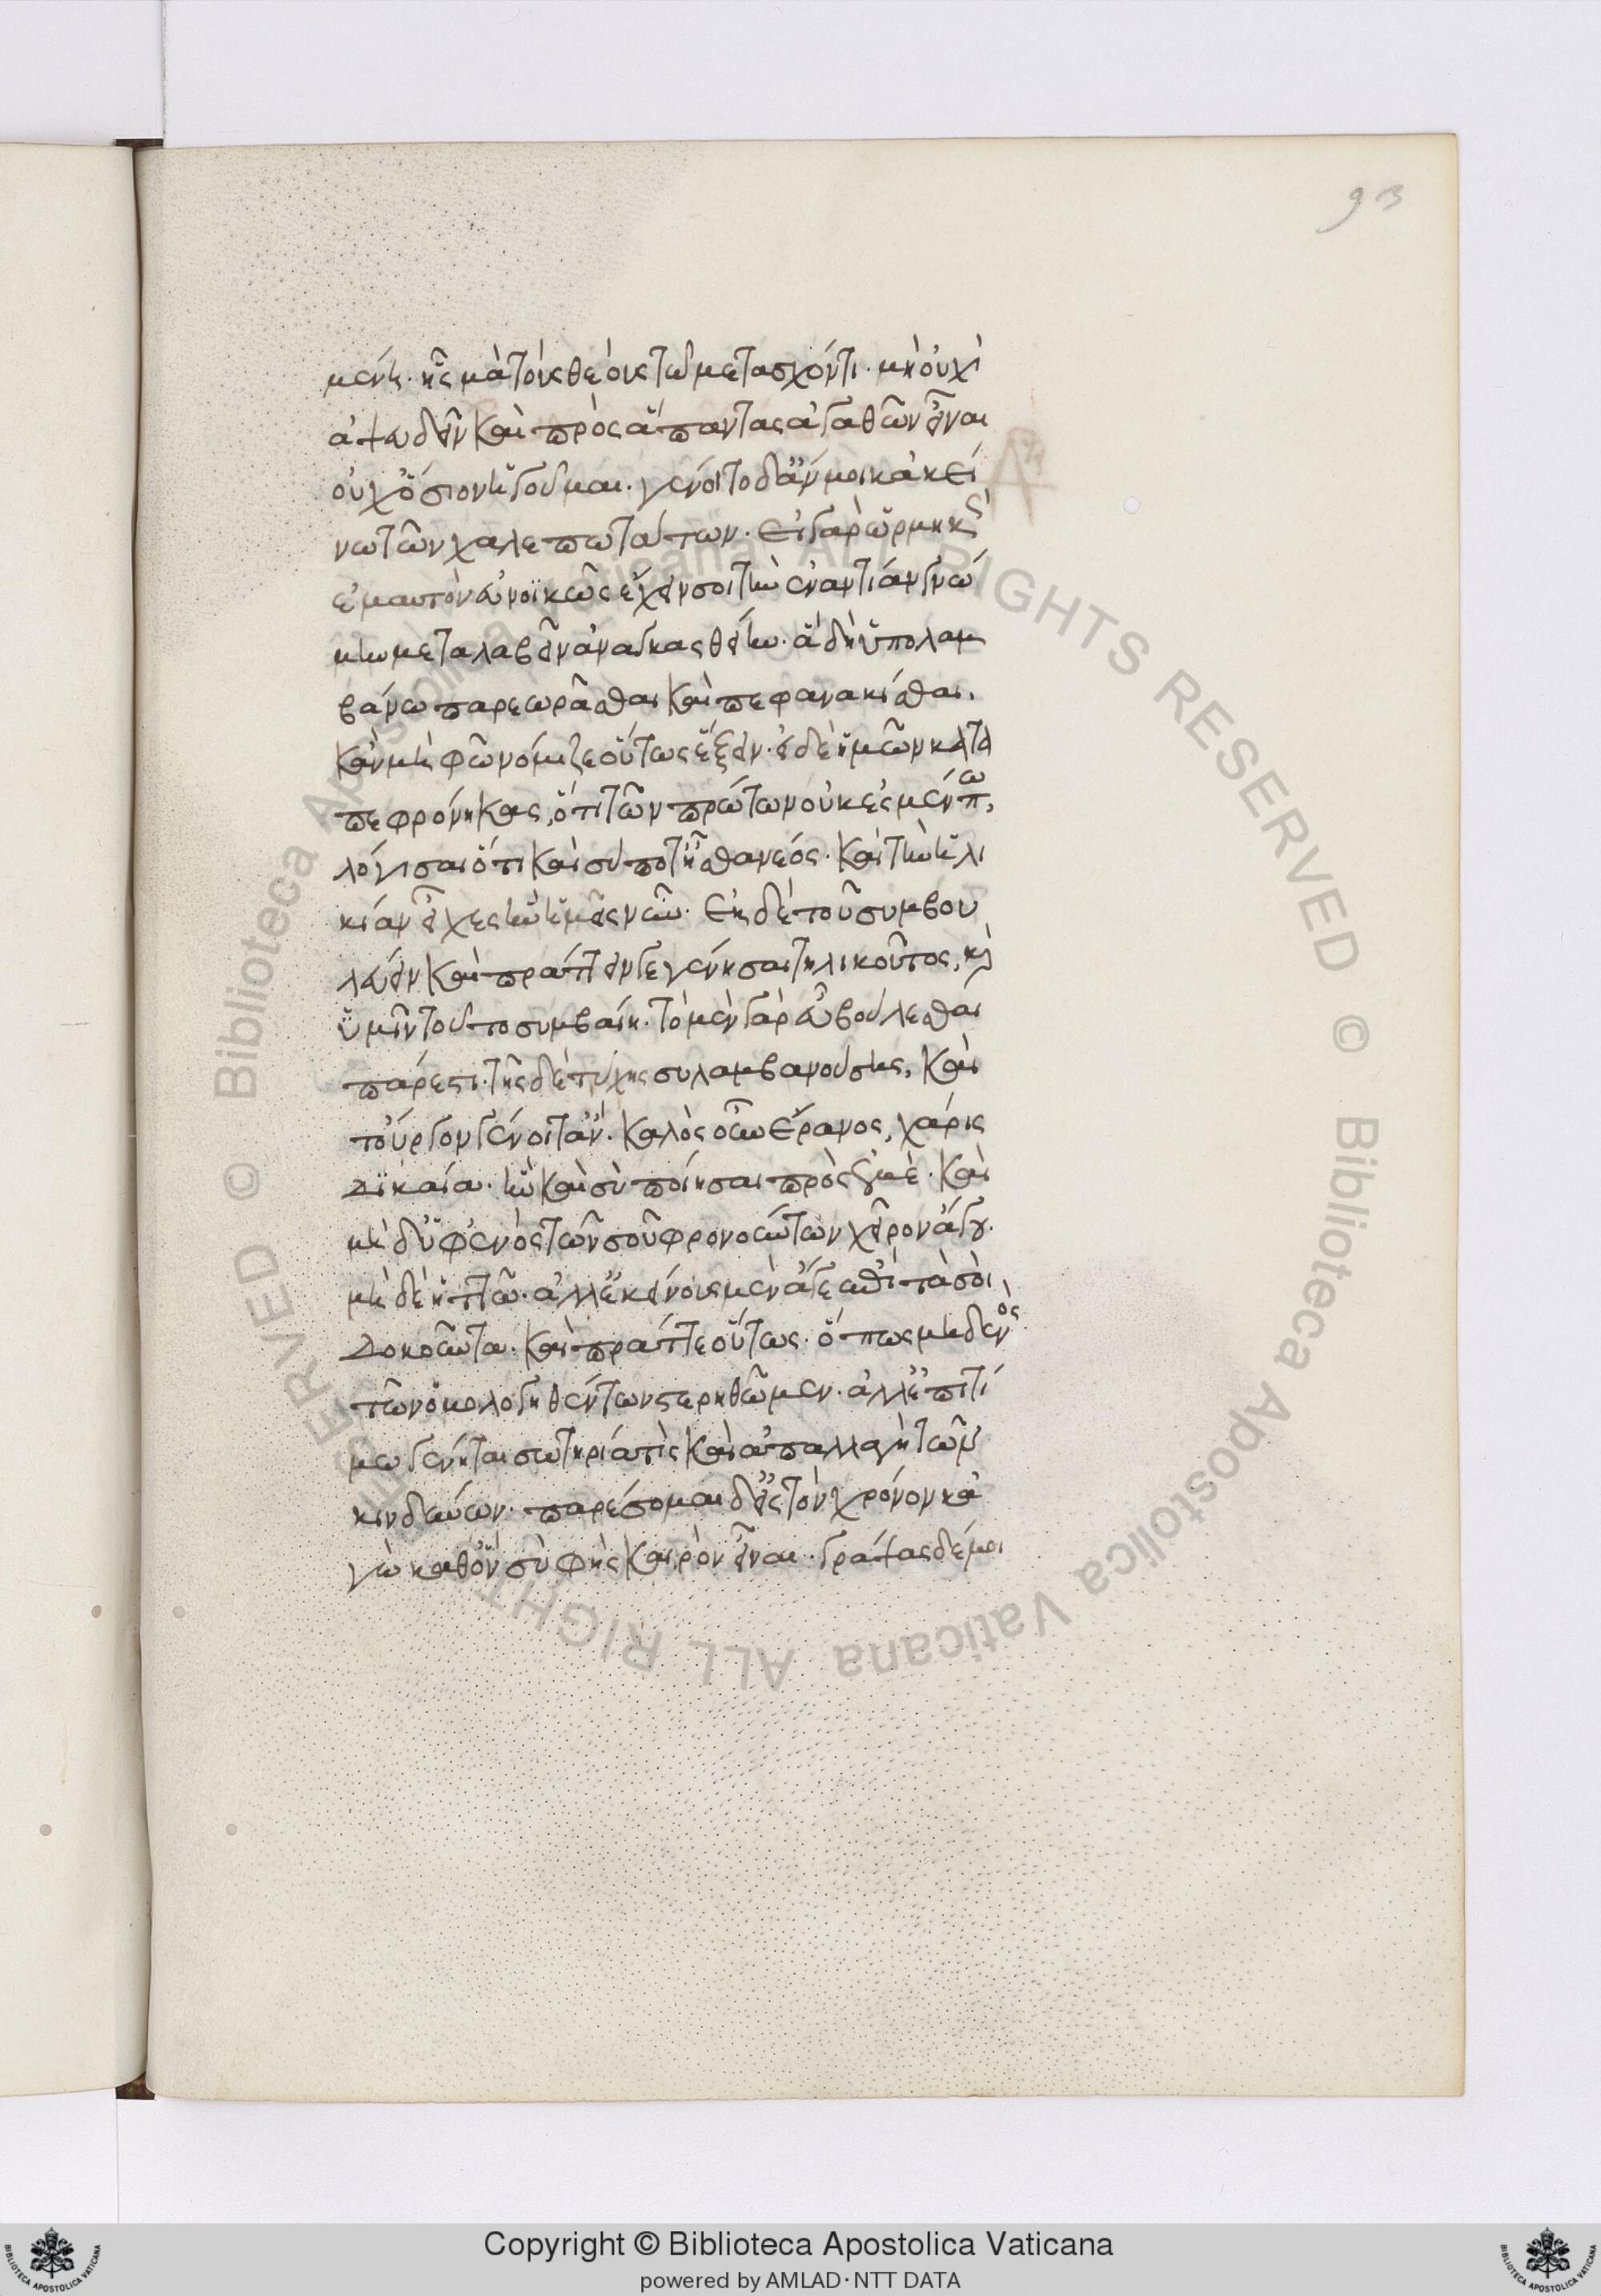 93
μένη. ἧς μὰ τοὺς θεοὺς τῶ μετασχόντι. μὴ οὐχὶ
ἀψευδεῖν καὶ πρὸς ἅπαντας ἀγαθῶν εἶναι
οὐχ ὅσιον ἡγοῦμαι. γένοιτο δ' ἄν μοι κἀκεί
νω τῶν χαλεπωτάτων. εἰ γὰρ ὥρμηκὼς
ἐμαυτὸν εὐνοϊκῶς ἔχειν σοι τὴν ἐναντίαν γνώ
μην μεταλαβεῖν ἀναγκασθείην. ἃ δὴ ὑπολαμ
βάνω παρεωρᾶσθαι καὶ πεφανακίσθαι.
κἂν μὴ φῶ νόμιζε οὕτως ἕξειν. εἰ δὲ ἡμῶν κατα
πεφρόνηκας, ὅτι τῶν πρώτων οὐκ ἐσμέν πω,
λόγισαι ὅτι καὶ σύ ποτ' ἦσθα νέος. καὶ τὴν ἡλι
κίαν εἶχες ἣν ἡμεῖς νῦν. ἐκ δὲ τοῦ συμβου
λεύειν καὶ πράττειν γεγένησαι τηλικοῦτος, κἂν
ὑμῖν τοῦτο συμβαίη. τὸ μὲν γὰρ εὖ βούλεσθαι
πάρεστι. τῆς δὲ τύχης συλαμβανούσης, καὶ
τοὔργον γένοιτ' ἄν. καλὸς οὖν ἔρανος, χάρις
δϊκαία. ἣν καὶ σὺ ποίησαι πρὸς ἐμέ. καὶ
μηδ' ὑφ' ἑνὸς τῶν σοῦ φρονούντων χεῖρον ἄγου.
μηδὲ ἡττῶ. ἀλλ' ἐκείνους μὲν ἄγε ἐπὶ τὰ σοὶ
δοκοῦντα. καὶ πράττε οὕτως. ὅπως μηδενὸς
τῶν ὁμολογηθέντων στερηθῶμεν. ἀλλ' ἐπιτί
μω γένηται σωτηρία τὶς καὶ ἀπαλλαγὴ τῶν
κινδύνων. παρέσομαι δ' εἰς τὸν χρόνον κἀ
γὼ καθ' ὃν σὺ φῂς καιρὸν εἶναι. γράψας δέ μοι
Copyright © Biblioteca Apostolica Vaticana
powered by AMLAD·NTT DATA